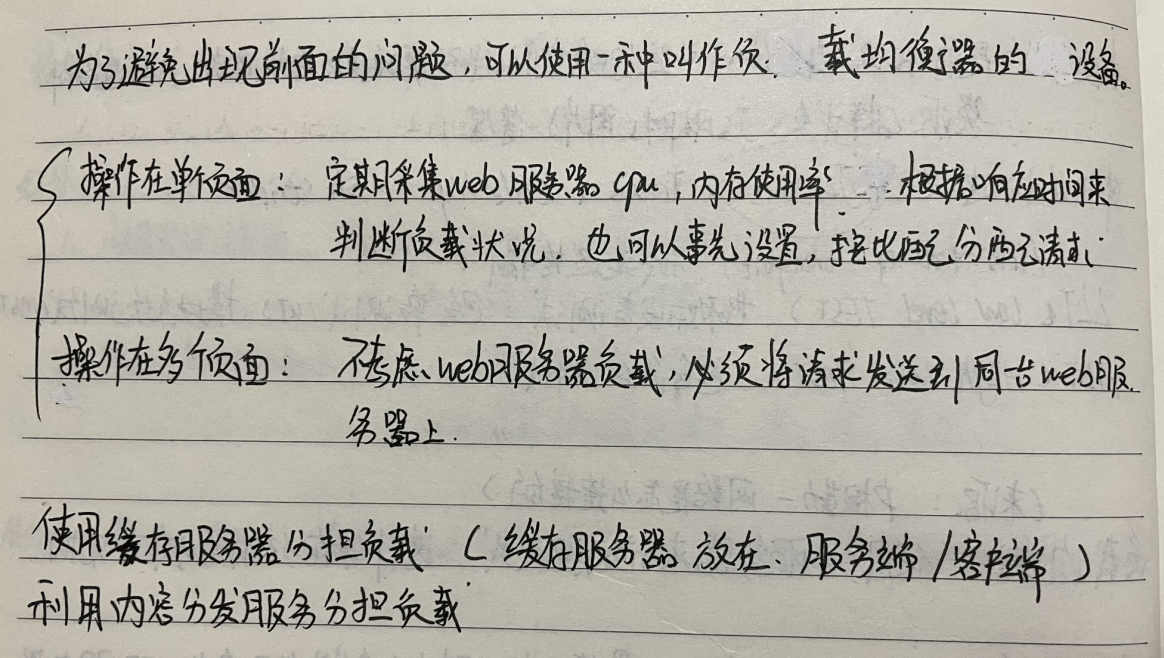 为了避免出现前面的问题,可以使用一种叫作负. 载均衡器的 设备。
操作在单个页面: 定期采集web服务器 cpu,内存使用率 ... 根据响应时间来
判断负载状况. 也可以事先设置,按比配分配请求.
操作在多个页面: 不考虑web服务器负载,必须将请求发送到同一台web服
务器上.
使用缓存服务器分担负载 (缓存服务器 放在. 服务端/客户端)
利用内容分发服务分担负载